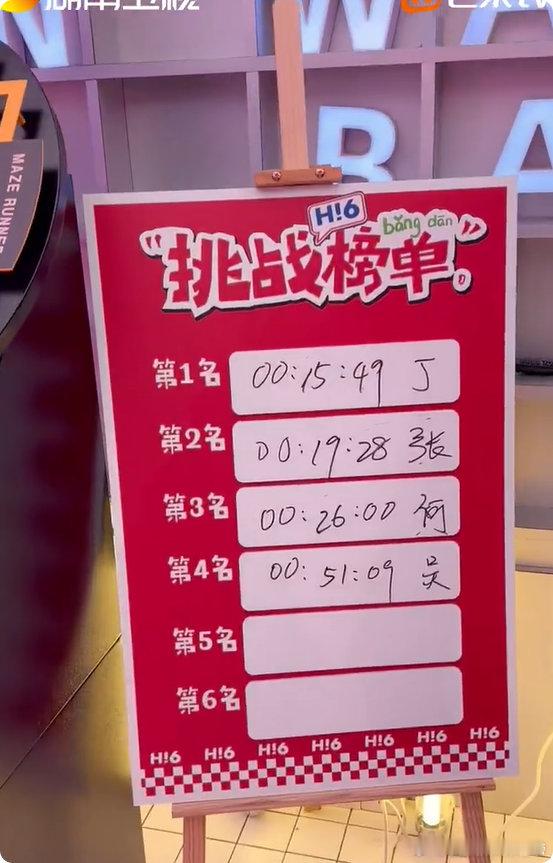 湖南卫视
MAZE RUNNER
H!6
bǎng dān
“挑战榜单。”
第1名 00:15:49 丁
第2名 00:19:28 张
第3名 00:26:00 何
第4名 00:51:09 吴
第5名
第6名
H!6 H!6 H!6 H!6 H!6 H!6 H!6